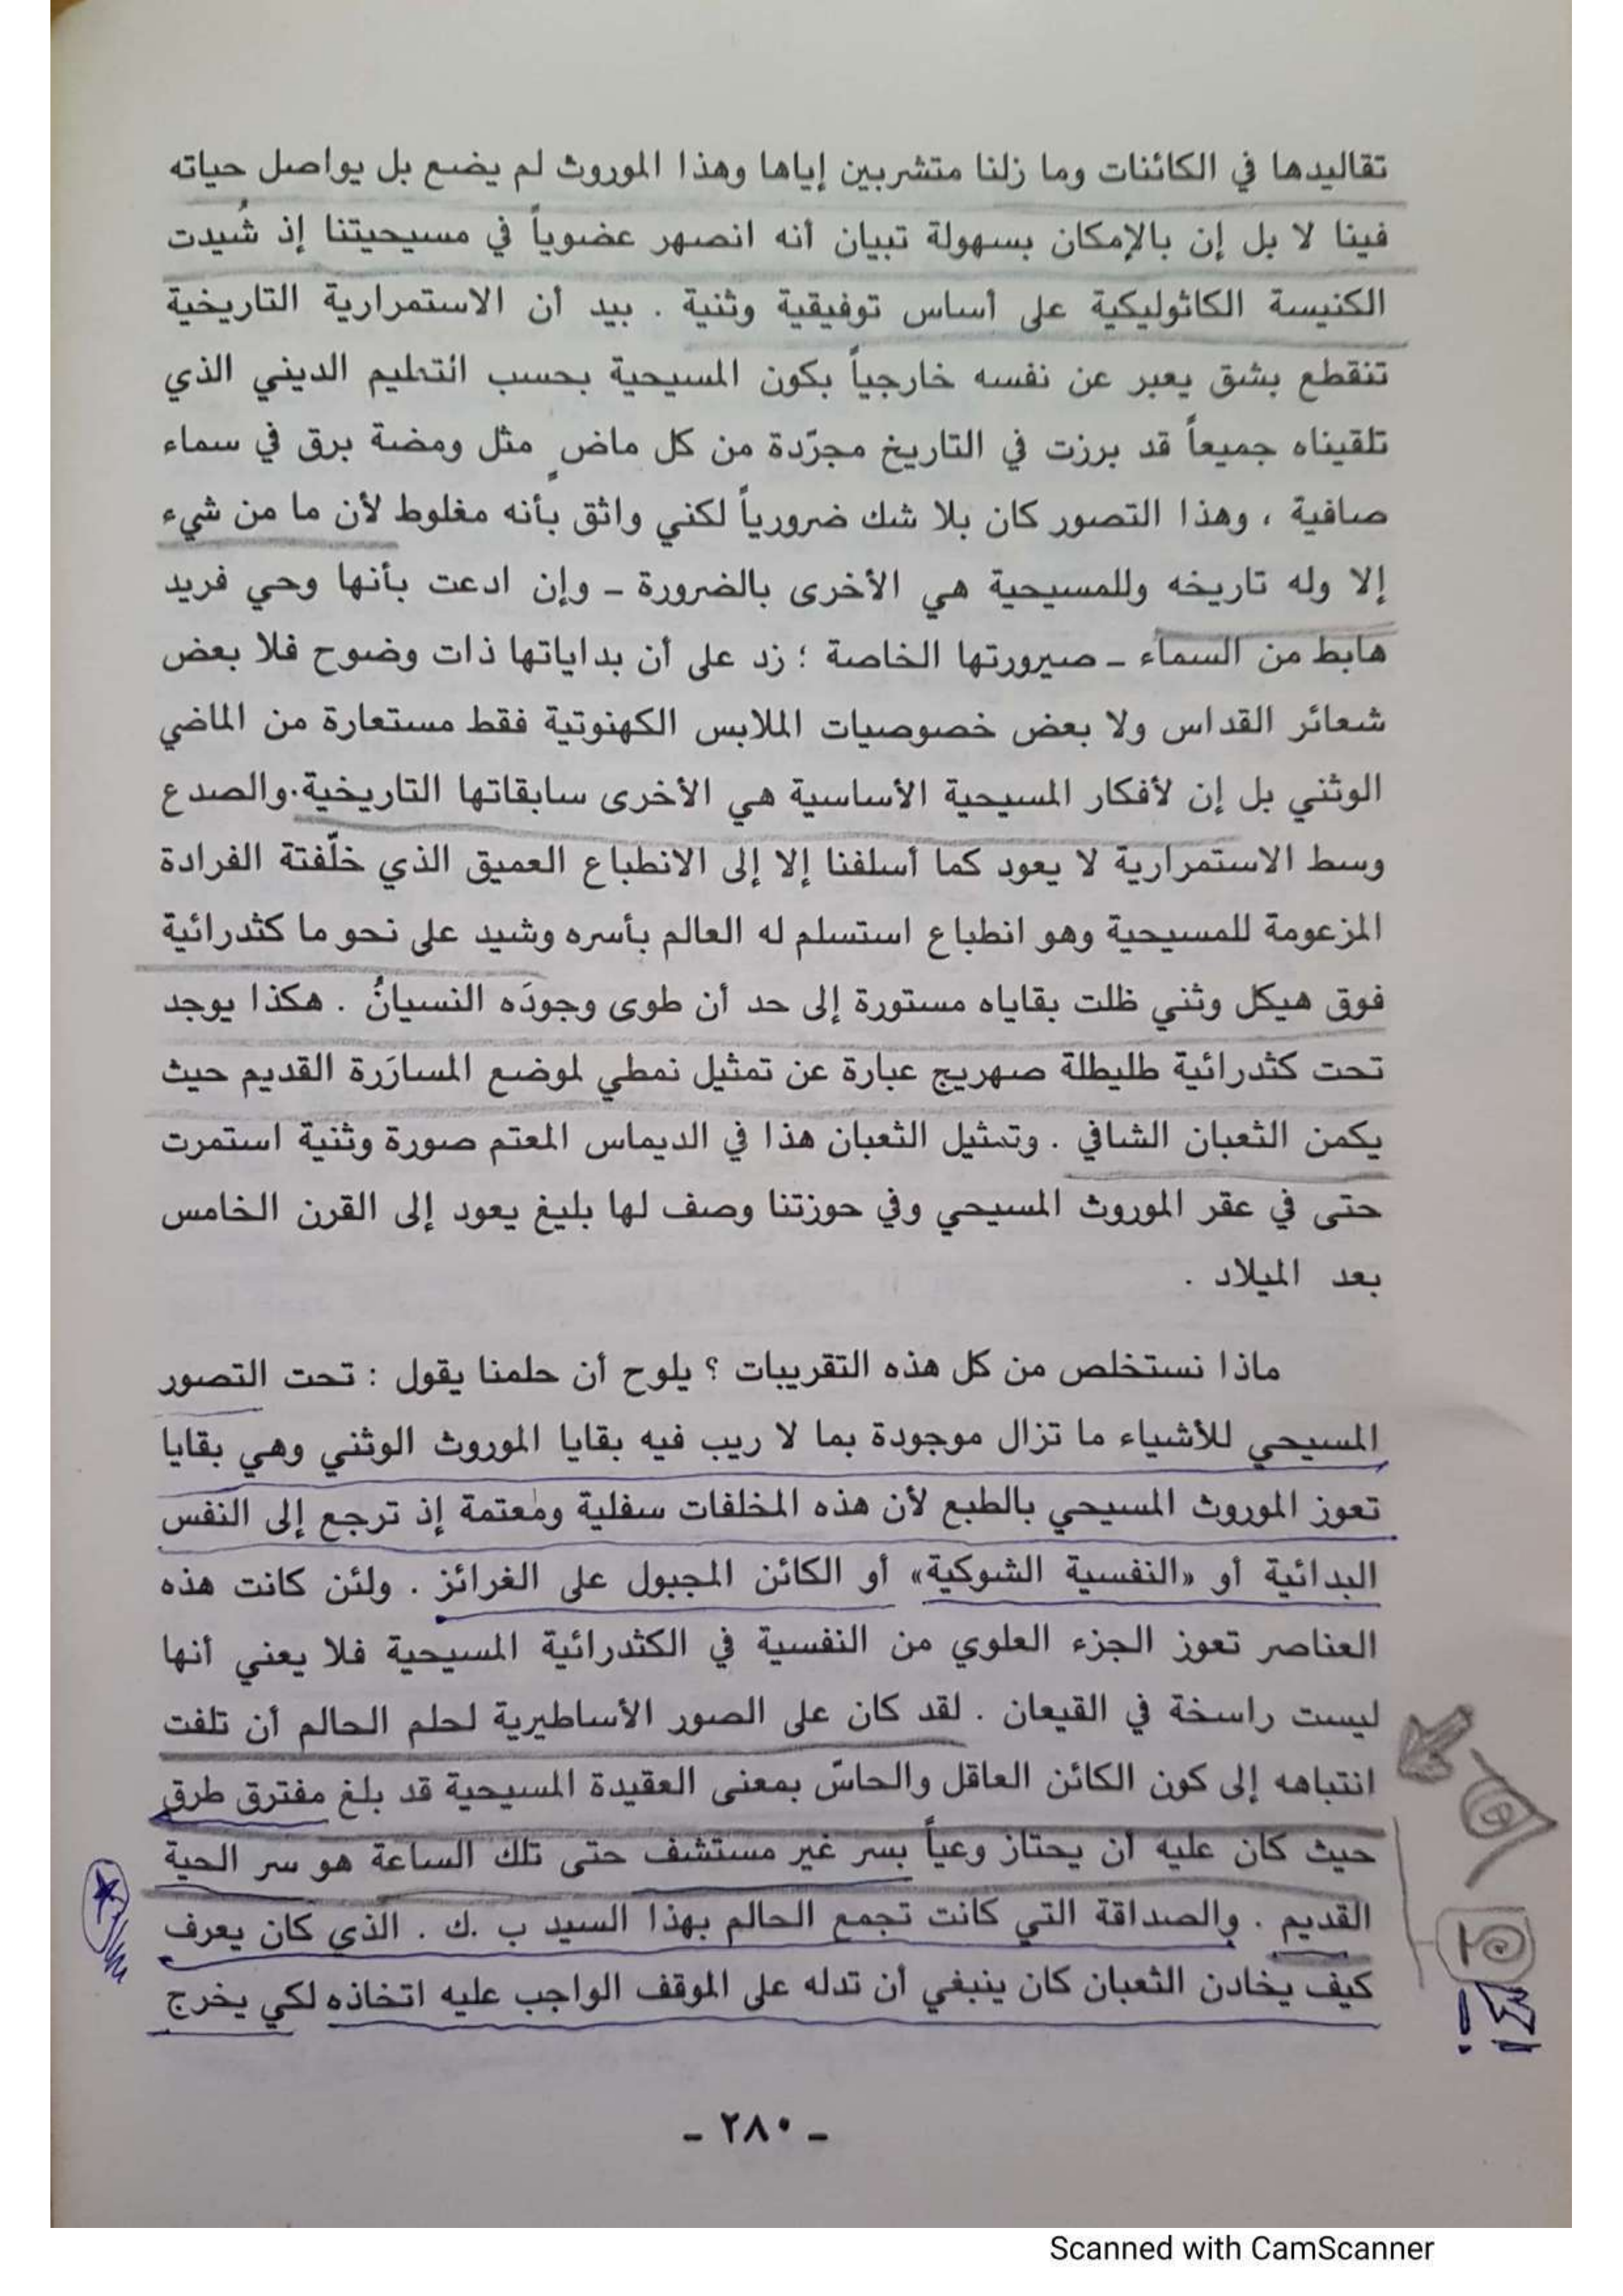 تقاليدها في الكائنات وما زلنا متشربين إياها وهذا الموروث لم يضع بل يواصل حياته
فينا لا بل إن بالإمكان بسهولة تبيان أنه انصهر عضوياً في مسيحيتنا إذ شُيدت
الكنيسة الكاثوليكية على أساس توفيقية وثنية . بيد أن الاستمرارية التاريخية
تنقطع بشق يعبر عن نفسه خارجياً بكون المسيحية بحسب التعليم الديني الذي
تلقيناه جميعاً قد برزت في التاريخ مجرّدة من كل ماضٍ مثل ومضة برق في سماء
صافية ، وهذا التصور كان بلا شك ضرورياً لكني واثق بأنه مغلوط لأن ما من شيء
إلا وله تاريخه وللمسيحية هي الأخرى بالضرورة ـ وإن ادعت بأنها وحي فريد
هابط من السماء ـ صيرورتها الخاصة ؛ زد على أن بداياتها ذات وضوح فلا بعض
شعائر القداس ولا بعض خصوصيات الملابس الكهنوتية فقط مستعارة من الماضي
الوثني بل إن لأفكار المسيحية الأساسية هي الأخرى سابقاتها التاريخية . والصدع
وسط الاستمرارية لا يعود كما أسلفنا إلا إلى الانطباع العميق الذي خلّفتة الفرادة
المزعومة للمسيحية وهو انطباع استسلم له العالم بأسره وشيد على نحو ما كثدرائية
فوق هيكل وثني ظلت بقاياه مستورة إلى حد أن طوى وجودَه النسيانُ . هكذا يوجد
تحت كثدرائية طليطلة صهريج عبارة عن تمثيل نمطي لموضع المسارَرة القديم حيث
يكمن الثعبان الشافي . وتمثيل الثعبان هذا في الديماس المعتم صورة وثنية استمرت
حتى في عقر الموروث المسيحي وفي حوزتنا وصف لها بليغ يعود إلى القرن الخامس
بعد الميلاد .
ماذا نستخلص من كل هذه التقريبات ؟ يلوح أن حلمنا يقول : تحت التصور
المسيحي للأشياء ما تزال موجودة بما لا ريب فيه بقايا الموروث الوثني وهي بقايا
تعوز الموروث المسيحي بالطبع لأن هذه المخلفات سفلية ومعتمة إذ ترجع إلى النفس
البدائية أو «النفسية الشوكية» أو الكائن المجبول على الغرائز . ولئن كانت هذه
العناصر تعوز الجزء العلوي من النفسية في الكثدرائية المسيحية فلا يعني أنها
ليست راسخة في القيعان . لقد كان على الصور الأساطيرية لحلم الحالم أن تلفت
انتباهه إلى كون الكائن العاقل والحاسّ بمعنى العقيدة المسيحية قد بلغ مفترق طرق
حيث كان عليه أن يحتاز وعياً بسر غير مستشف حتى تلك الساعة هو سر الحية
القديم . والصداقة التي كانت تجمع الحالم بهذا السيد ب .ك . الذي كان يعرف
كيف يخادن الثعبان كان ينبغي أن تدله على الموقف الواجب عليه اتخاذه لكي يخرج
ـ ٢٨٠ ـ
Scanned with CamScanner